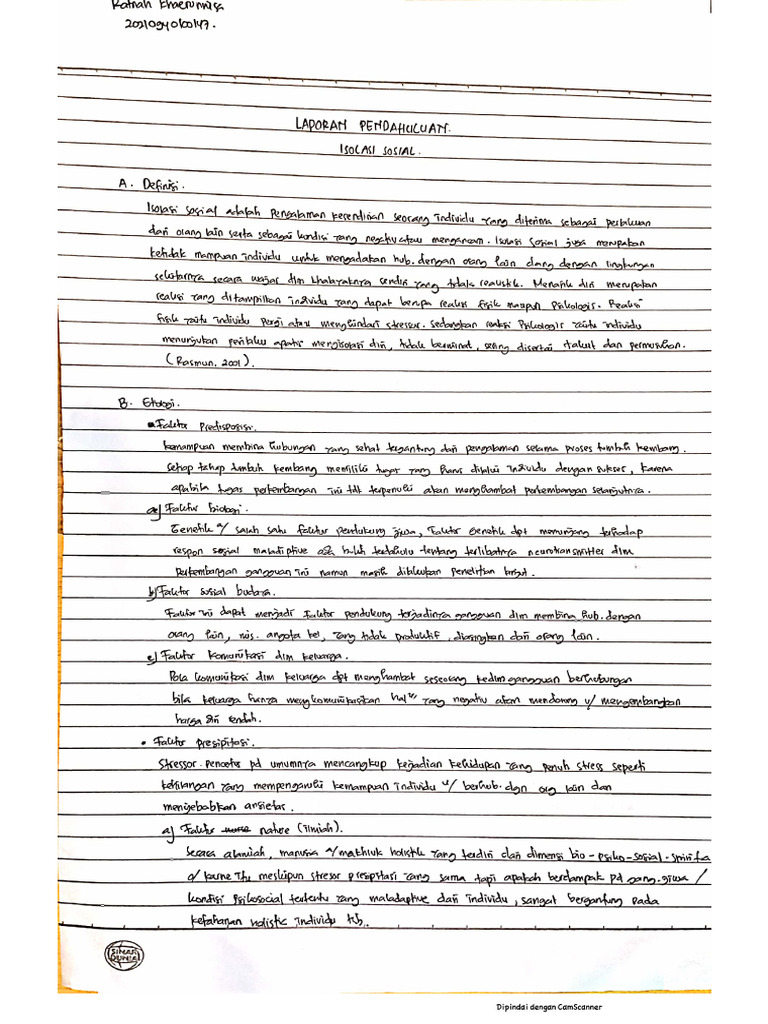 Ratnah Khaerunnisa
20210940100147.
LAPORAN PENDAHULUAN.
ISOLASI SOSIAL.
A. Definisi.
Isolasi sosial adalah pengalaman kesendirian seorang individu yang diterima sebagai perlakuan
dari orang lain serta sebagai kondisi yang negatif atau mengancam. Isolasi sosial juga merupakan
ketidak mampuan individu untuk mengadakan hub. dengan orang lain dang dengan lingkungan
sekitarnya secara wajar dlm khalayaknya sendiri yang tidak realistik. Menarik diri merupakan
reaksi yang ditampilkan individu yang dapat berupa reaksi fisik maupun psikologis. Reaksi
fisik yaitu individu pergi atau menghindari stressor. sedangkan reaksi psikologis yaitu individu
menunjukan perilaku apatis mengisolasi diri, tidak berminat, sering disertai takut dan permusuhan.
(Rasmun, 2001).
B. Etologi.
• Faktor Predisposisi.
kemampuan membina hubungan yang sehat tergantung dari pengalaman selama proses tumbuh kembang.
setiap tahap tumbuh kembang memiliki tugas yang harus dilalui individu dengan sukses, karena
apabila tugas perkembangan ini tdk terpenuhi akan menghambat perkembangan selanjutnya.
a) Faktor biologi.
Genetik a/ salah satu faktor pendukung jiwa, Faktor Genetik dpt menunjang terhadap
respon sosial maladiptive terdahulu tentang terlibatnya neurotransmitter dlm
perkembangan gangguan ini namun masih dibutuhkan penelitian lanjut.
b) Faktor sosial budaya.
Faktor ini dapat menjadi faktor pendukung terjadinya gangguan dlm membina hub. dengan
orang lain, mis. angota kel, yang tidak produktif, diasingkan dari orang lain.
c) Faktor komunikasi dlm keluarga.
Pola komunikasi dlm keluarga dpt menghambat seseorang kedlm gangguan berhubungan
bila keluarga hanya mengkomunikasikan hal" yang negatif akan mendorong u/ mengembangkan
harga diri rendah.
• Faktor presipitasi.
Stressor pencetus pd umumnya mencangkup kejadian kehidupan yang penuh stress seperti
kehilangan yang mempengaruhi kemampuan individu u/ berhub. dgn org lain dan
menyebabkan ansietas.
a) Faktor nature (ilmiah).
Secara alamiah, manusia a/ makhluk holistic yang terdiri dari dimensi bio-psiko-sosial-spirita
o/ karne itu meskipun stresor presipitasi yang sama tapi apakah berdampak pd gang. jiwa /
kondisi psikosocial tertentu yang maladaptive dari individu, sangat bergantung pada
ketahanan holistic individu tsb.
SINAR DUNIA
Dipindai dengan CamScanner